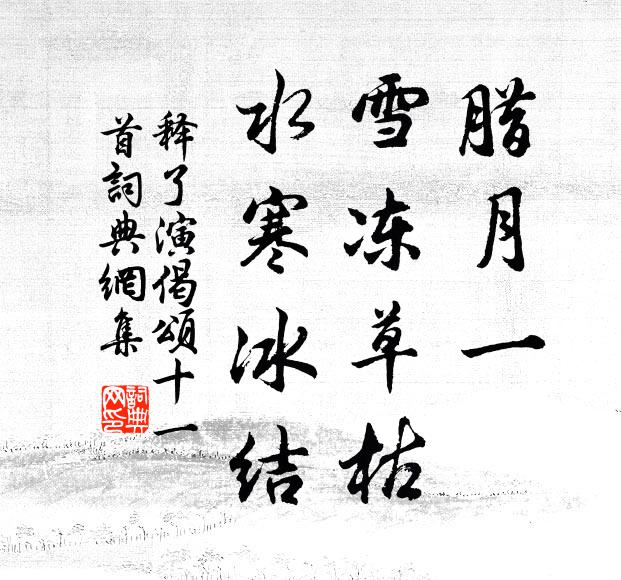 腊月一
雪冻草枯
水寒冰结
释了演偈頌十一
首詞典網集
詞典
网印